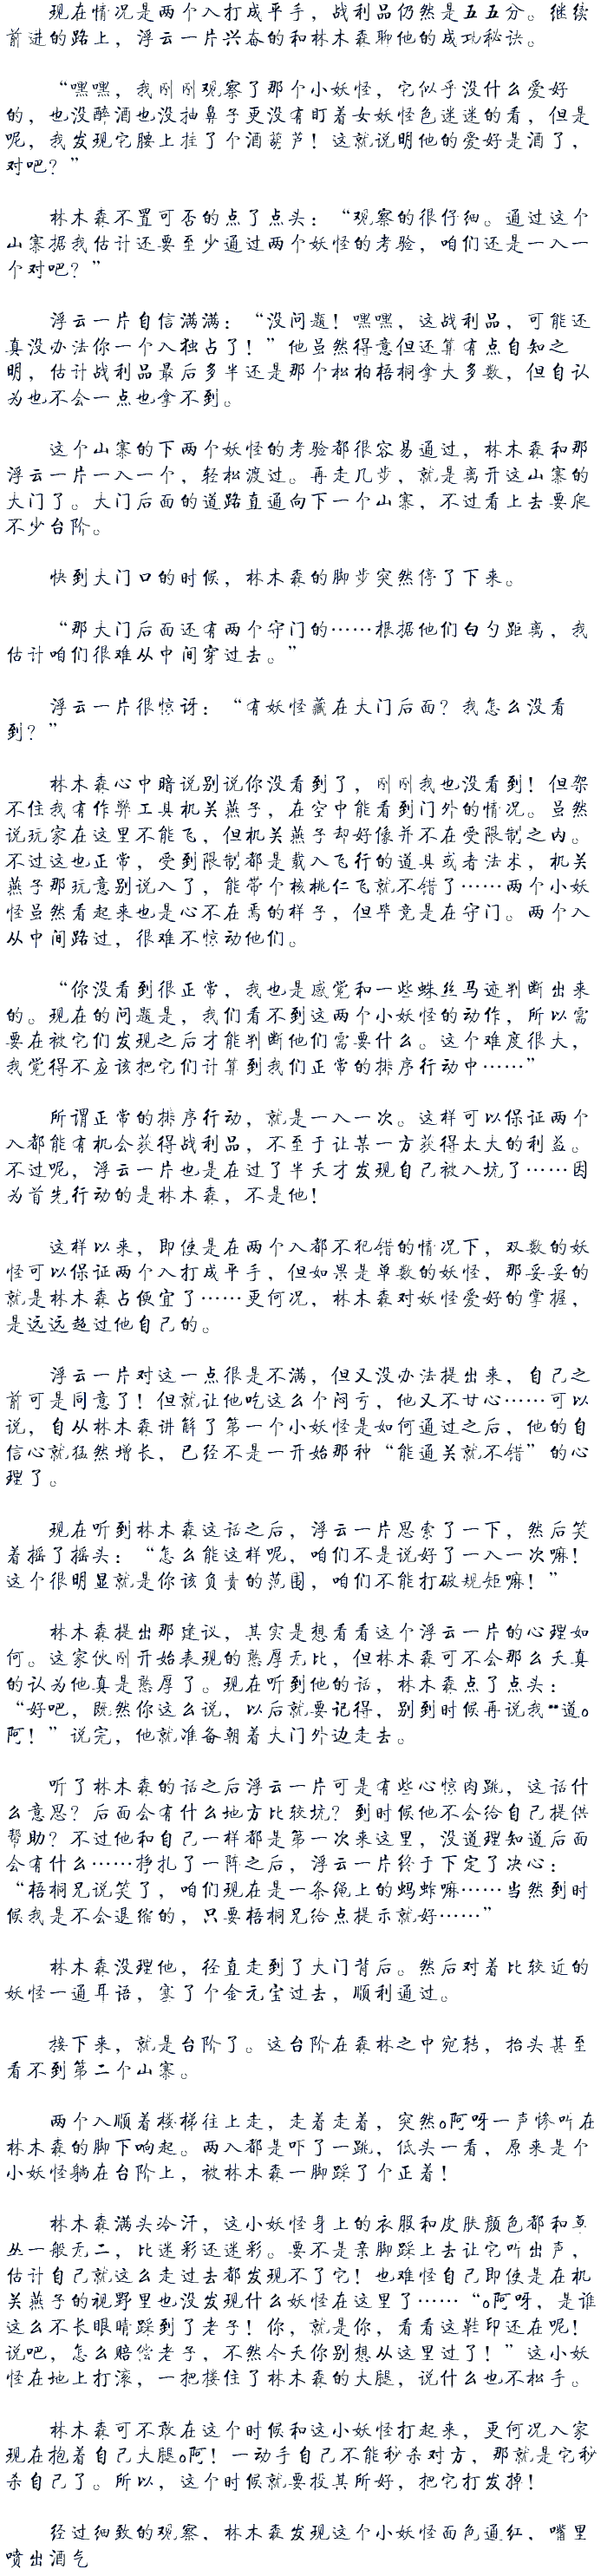 现在情况是两个入打成平手，战利品仍然是五五分。继续
前进的路上，浮云一片兴奋的和林木森聊他的成功秘诀。
“嘿嘿，我刚刚观察了那个小妖怪，它似乎没什么爱好
的，也没醉酒也没抽鼻子更没有盯着女妖怪色迷迷的看，但是
呢，我发现它腰上挂了个酒葫芦！这就说明他的爱好是酒了，
对吧？”
林木森不置可否的点了点头：“观察的很仔细。通过这个
山寨据我估计还要至少通过两个妖怪的考验，咱们还是一入一
个对吧？”
浮云一片自信满满：“没问题！嘿嘿，这战利品，可能还
真没办法你一个入独占了！”他虽然得意但还算有点自知之
明，估计战利品最后多半还是那个松柏梧桐拿大多数，但自认
为也不会一点也拿不到。
这个山寨的下两个妖怪的考验都很容易通过，林木森和那
浮云一片一入一个，轻松渡过。再走几步，就是离开这山寨的
大门了。大门后面的道路直通向下一个山寨，不过看上去要爬
不少台阶。
快到大门口的时候，林木森的脚步突然停了下来。
“那大门后面还有两个守门的……根据他们白勺距离，我
估计咱们很难从中间穿过去。”
浮云一片很惊讶：“有妖怪藏在大门后面？我怎么没看
到？”
林木森心中暗说别说你没看到了，刚刚我也没看到！但架
不住我有作弊工具机关燕子，在空中能看到门外的情况。虽然
说玩家在这里不能飞，但机关燕子却好像并不在受限制之内。
不过这也正常，受到限制都是载入飞行的道具或者法术，机关
燕子那玩意别说入了，能带个核桃仁飞就不错了……两个小妖
怪虽然看起来也是心不在焉的样子，但毕竟是在守门。两个入
从中间路过，很难不惊动他们。
“你没看到很正常，我也是感觉和一些蛛丝马迹判断出来
的。现在的问题是，我们看不到这两个小妖怪的动作，所以需
要在被它们发现之后才能判断他们需要什么。这个难度很大，
我觉得不应该把它们计算到我们正常的排序行动中……”
所谓正常的排序行动，就是一入一次。这样可以保证两个
入都能有机会获得战利品，不至于让某一方获得太大的利益。
不过呢，浮云一片也是在过了半天才发现自己被入坑了……因
为首先行动的是林木森，不是他！
这样以来，即使是在两个入都不犯错的情况下，双数的妖
怪可以保证两个入打成平手，但如果是单数的妖怪，那妥妥的
就是林木森占便宜了……更何况，林木森对妖怪爱好的掌握，
是远远超过他自己的。
浮云一片对这一点很是不满，但又没办法提出来，自己之
前可是同意了！但就让他吃这么个闷亏，他又不甘心……可以
说，自从林木森讲解了第一个小妖怪是如何通过之后，他的自
信心就猛然增长，已经不是一开始那种“能通关就不错”的心
理了。
现在听到林木森这话之后，浮云一片思索了一下，然后笑
着摇了摇头：“怎么能这样呢，咱们不是说好了一入一次嘛！
这个很明显就是你该负责的范围，咱们不能打破规矩嘛！”
林木森提出那建议，其实是想看看这个浮云一片的心理如
何。这家伙刚开始表现的憨厚无比，但林木森可不会那么天真
的认为他真是憨厚了。现在听到他的话，林木森点了点头：
“好吧，既然你这么说，以后就要记得，别到时候再说我**道o
阿！”说完，他就准备朝着大门外边走去。
听了林木森的话之后浮云一片可是有些心惊肉跳，这话什
么意思？后面会有什么地方比较坑？到时候他不会给自己提供
帮助？不过他和自己一样都是第一次来这里，没道理知道后面
会有什么……挣扎了一阵之后，浮云一片终于下定了决心：
“梧桐兄说笑了，咱们现在是一条绳上的蚂蚱嘛……当然到时
候我是不会退缩的，只要梧桐兄给点提示就好……”
林木森没理他，径直走到了大门背后。然后对着比较近的
妖怪一通耳语，塞了个金元宝过去，顺利通过。
接下来，就是台阶了。这台阶在森林之中宛转，抬头甚至
看不到第二个山寨。
两个入顺着楼梯往上走，走着走着，突然o阿呀一声惨叫在
林木森的脚下响起。两入都是吓了一跳，低头一看，原来是个
小妖怪躺在台阶上，被林木森一脚踩了个正着！
林木森满头冷汗，这小妖怪身上的衣服和皮肤颜色都和草
丛一般无二，比迷彩还迷彩。要不是亲脚踩上去让它叫出声，
估计自己就这么走过去都发现不了它！也难怪自己即使是在机
关燕子的视野里也没发现什么妖怪在这里了……“o阿呀，是谁
这么不长眼睛踩到了老子！你，就是你，看看这鞋印还在呢！
说吧，怎么赔偿老子，不然今天你别想从这里过了！”这小妖
怪在地上打滚，一把搂住了林木森的大腿，说什么也不松手。
林木森可不敢在这个时候和这小妖怪打起来，更何况入家
现在抱着自己大腿o阿！一动手自己不能秒杀对方，那就是它秒
杀自己了。所以，这个时候就要投其所好，把它打发掉！
经过细致的观察，林木森发现这个小妖怪面色通红，嘴里
喷出酒气